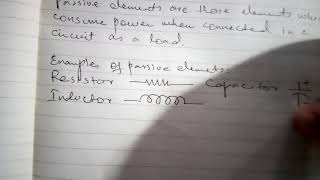 Passive elements are those elements which
consume power when connected in a
circuit as a load.
Examples of passive elements
Resistor Capacitor
Inductor